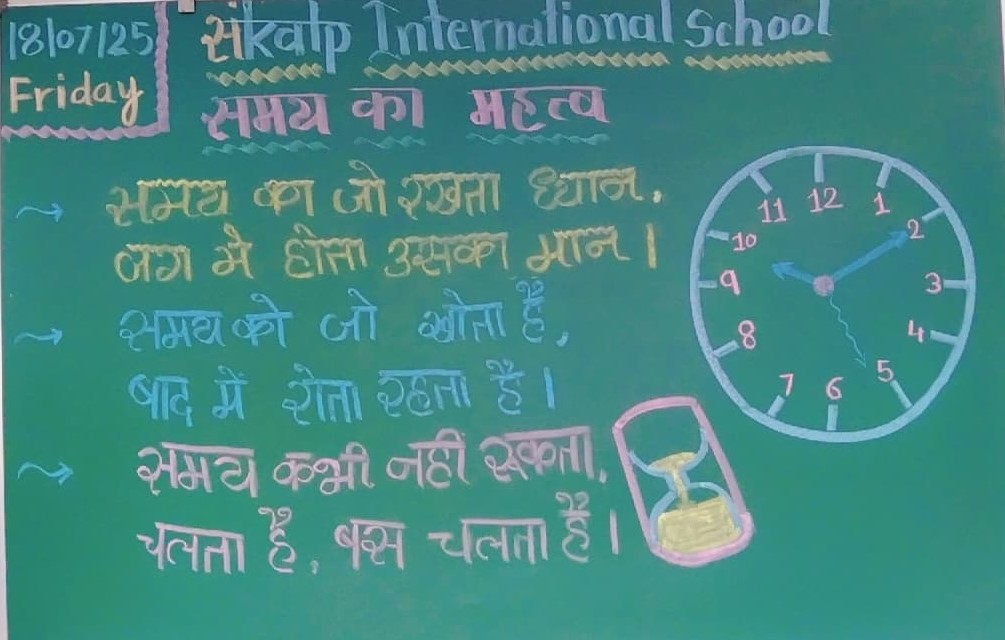 18/07/25
Friday
संkalp International School
समय का महत्व
समय का जो रखता ध्यान,
जग मे होता उसका मान।
समय को जो खोता है,
बाद में रोता रहता है।
समय कभी नहीं रूकता,
चलता है, बस चलता है।
12
1
2
3
4
5
6
7
8
9
10
11